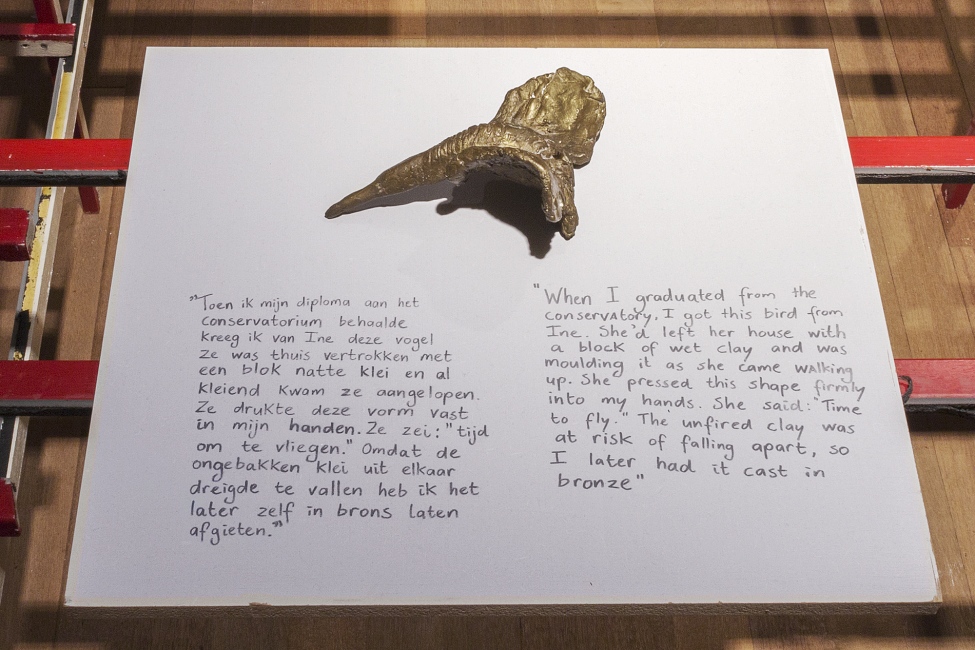 "Toen ik mijn diploma aan het
conservatorium behaalde
kreeg ik van Ine deze vogel
ze was thuis vertrokken met
een blok natte klei en al
kleiend kwam ze aangelopen.
Ze drukte deze vorm vast
in mijn handen. Ze zei: "tijd
om te vliegen." Omdat de
ongebakken klei uit elkaar
dreigde te vallen heb ik het
later zelf in brons laten
afgieten."
"When I graduated from the
conservatory, I got this bird from
Ine. She'd left her house with
a block of wet clay and was
moulding it as she came walking
up. She pressed this shape firmly
into my hands. She said: "Time
to fly." The unfired clay was
at risk of falling apart, so
I later had it cast in
bronze"